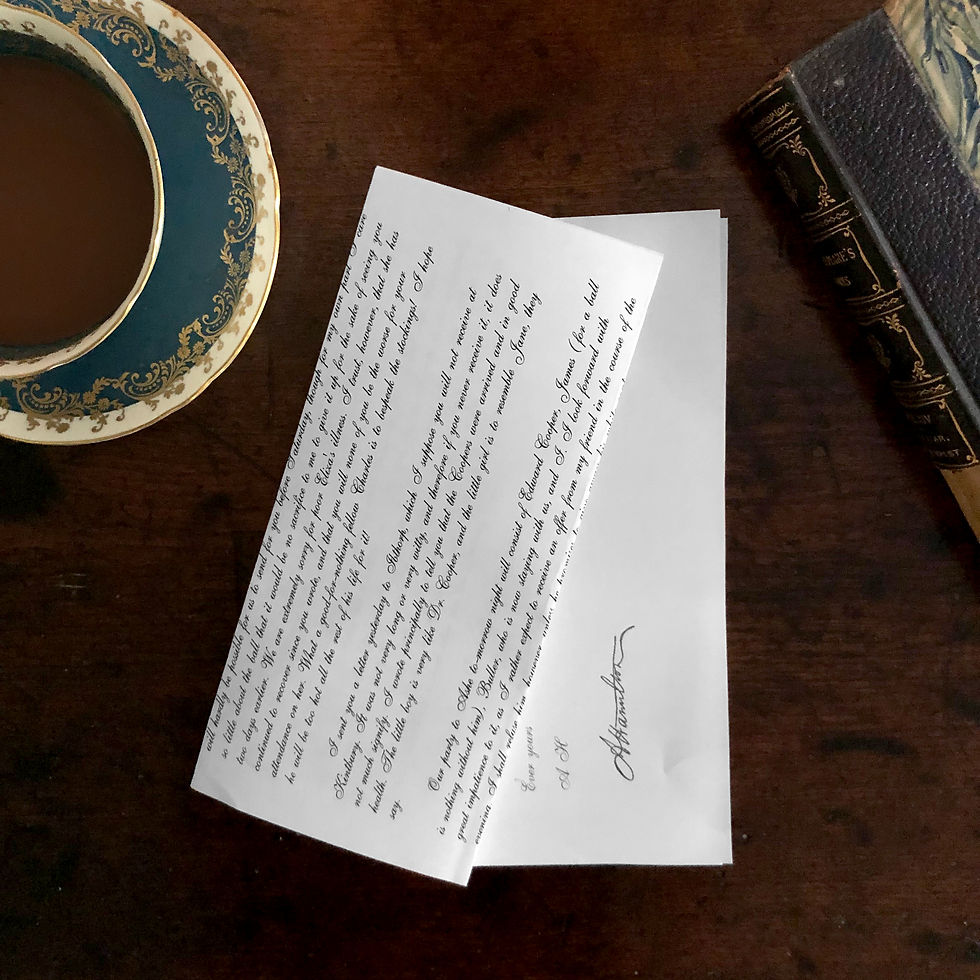 will hardly be possible for us to send for you before Saturday, though for my own part I care
so little about the ball that it would be no sacrifice to me to give it up for the sake of seeing you
two days earlier. We are extremely sorry for poor Eliza's illness. I trust, however, that she has
continued to recover since you wrote, and that you will none of you be the worse for your
attendance on her. What a good-for-nothing fellow Charles is to bespeak the stockings! I hope
he will be too hot all the rest of his life for it!
I sent you a letter yesterday to Ibthorp, which I suppose you will not receive at
Kintbury. It was not very long or very witty, and therefore if you never receive it, it does
not much signify. I wrote principally to tell you that the Coopers were arrived and in good
health. The little boy is very like Dr. Cooper, and the little girl is to resemble Jane, they
say.
Our party to Ashe to-morrow night will consist of Edward Cooper, James (for a ball
is nothing without him), Buller, who is now staying with us, and I. I look forward with
great impatience to it, as I rather expect to receive an offer from my friend in the course of the
evening. I shall refuse him, however, unless he
Ever yours
A H
AHamilton